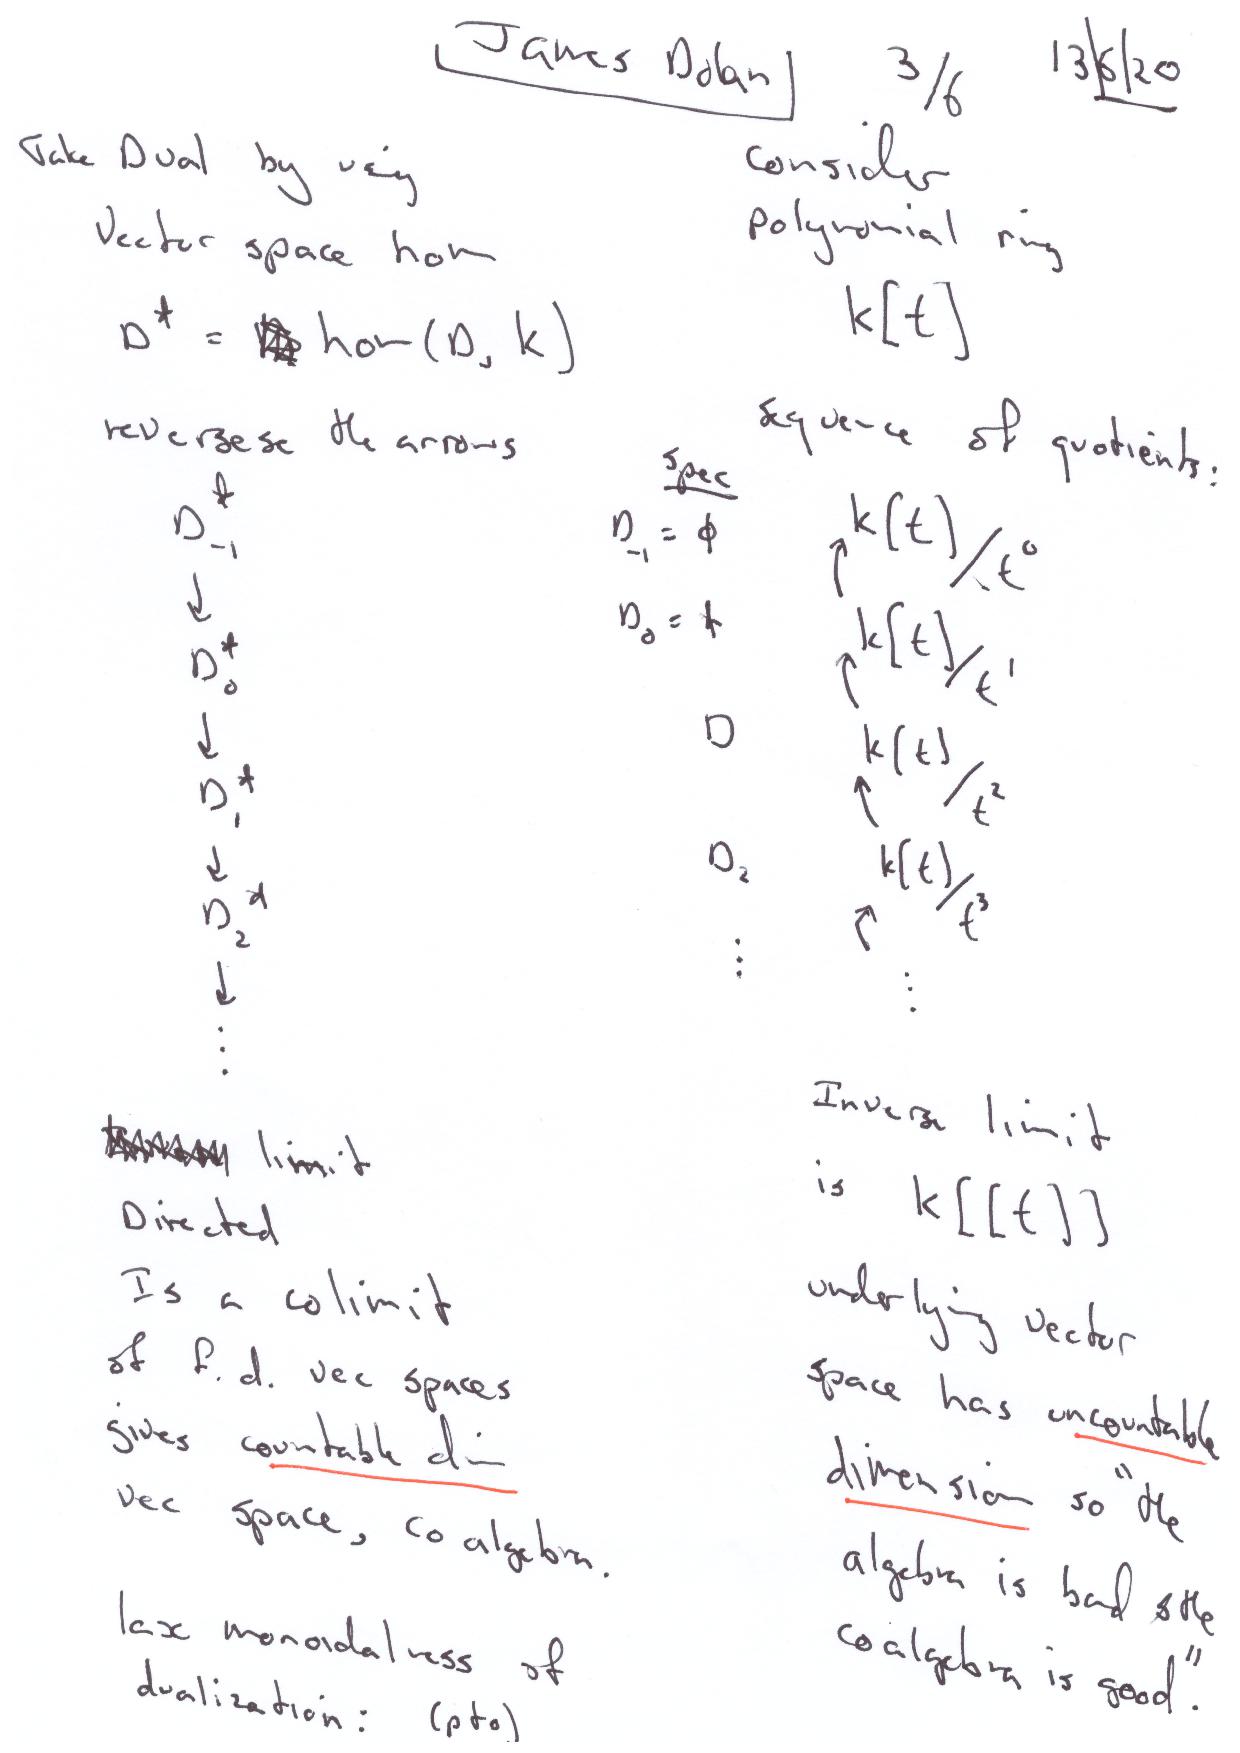 James Dolan 3/6 13/6/20
Take Dual by using
Vector space hom
D* = hom(D, k)
reversese the arrows
D_{-1}^*
↓
D_0^*
↓
D_1^*
↓
D_2^*
↓
⋮
limit
Directed
Is a colimit
of f.d. vec spaces
gives countable dim
vec space, coalgebra.
lax monoidalness of
dualization: (pto)
consider
polynomial ring
k[t]
sequence of quotients:
spec
D_{-1} = φ k[t]/t^0
↑
D_0 = * k[t]/t^1
↑
D k[t]/t^2
↑
D_2 k[t]/t^3
↑
⋮ ⋮
Inverse limit
is k[[t]]
underlying vector
space has uncountable
dimension so "the
algebra is bad & the
coalgebra is good".